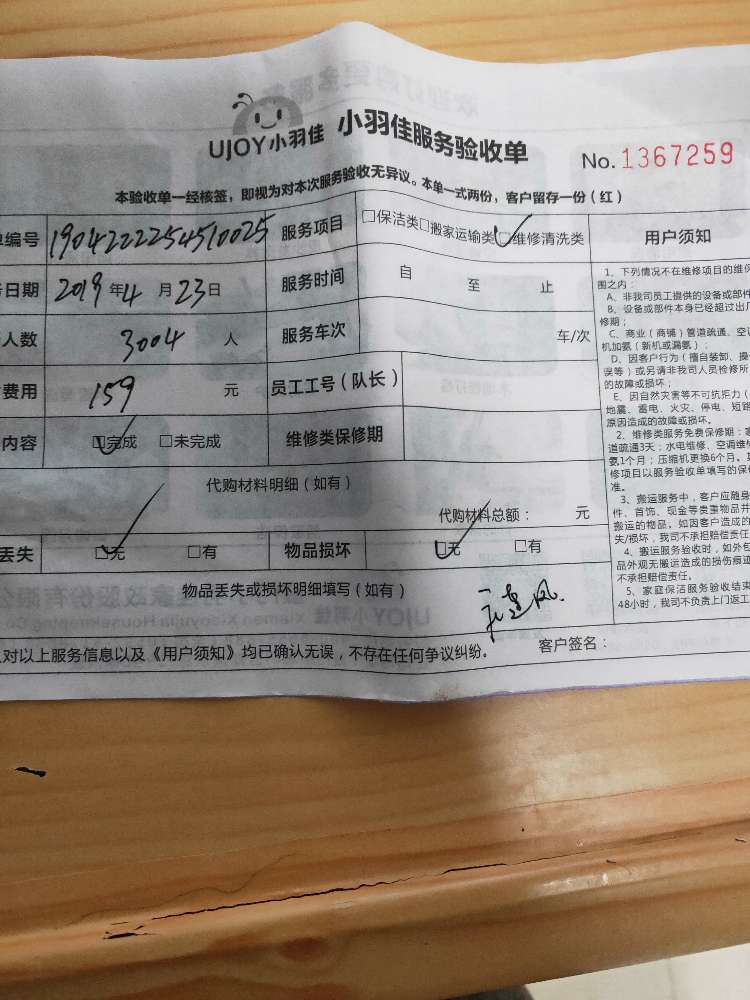 UJOY小羽佳 小羽佳服务验收单
No. 1367259
本验收单一经核签，即视为对本次服务验收无异议。本单一式两份，客户留存一份（红）
单编号 1904222254510025 服务项目 □保洁类□搬家运输类□维修清洗类 用户须知
务日期 2019年4月23日 服务时间 自 至 止
人数 3004 人 服务车次 车/次
费用 159 元 员工工号（队长）
内容 □完成 □未完成 维修类保修期
代购材料明细（如有）
代购材料总额： 元
丢失 □无 □有 物品损坏 □无 □有
物品丢失或损坏明细填写（如有）
对以上服务信息以及《用户须知》均已确认无误，不存在任何争议纠纷。 客户签名：
1、下列情况不在维修项目的维保
围之内：
A、非我司员工提供的设备或部件
B、设备或部件本身已经超过出厂
修期；
C、商业（商铺）管道疏通、空调
机加氨（新机或漏氨）；
D、因客户行为（擅自装卸、操
误等）或另请非我司人员检修所
的故障或损坏；
E、因自然灾害等不可抗拒力（
地震、雷电、火灾、停电、短路
原因造成的故障或损坏。
2、维修类服务免费保修期：
道疏通3天；水电维修、空调维
氨1个月；压缩机更换6个月。
修项目以服务验收单填写的保
准。
3、搬运服务中，客户应随身
件、首饰、现金等贵重物品并
搬运的物品。如因客户造成的
失/损坏，我司不承担赔偿责任
4、搬运服务验收时，如外包
品外观无搬运造成的损伤痕迹
不承担赔偿责任。
5、家庭保洁服务验收结束
48小时，我司不负责上门返工